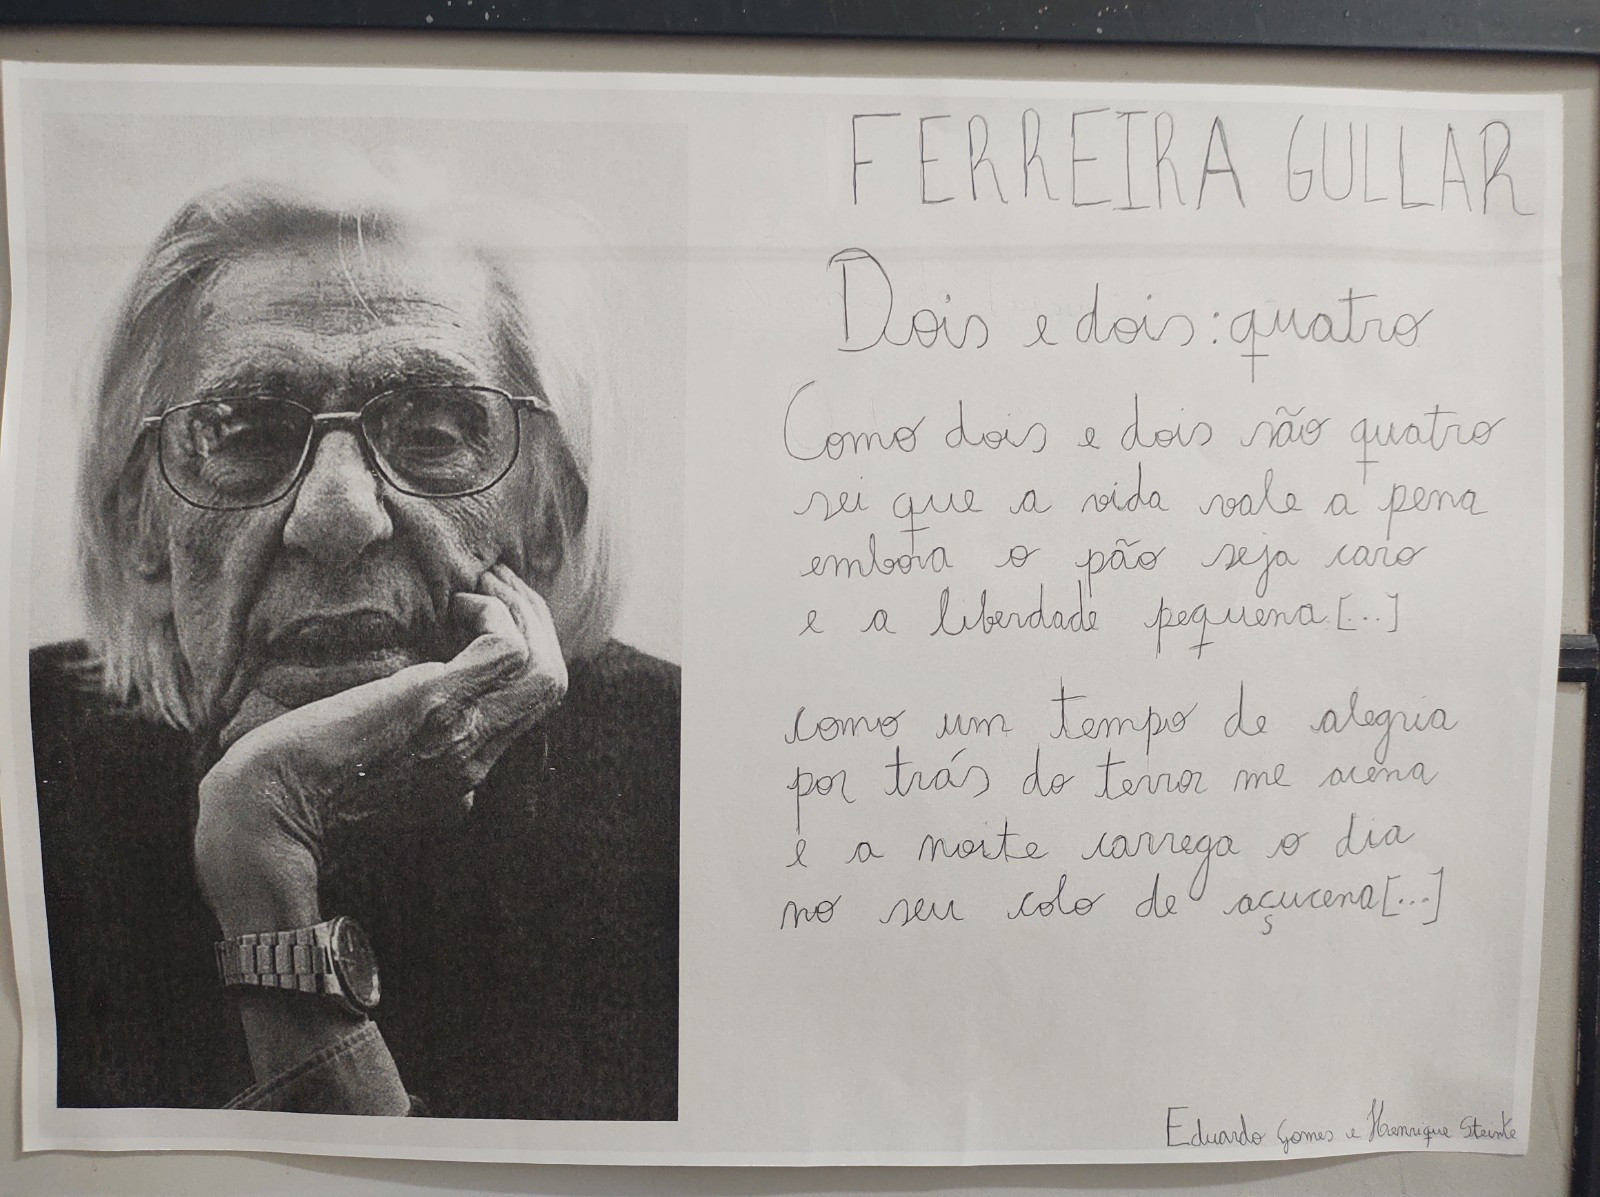 FERREIRA GULLAR
Dois e dois: quatro
Como dois e dois são quatro
sei que a vida vale a pena
embora o pão seja caro
e a liberdade pequena [...]
como um tempo de alegria
por trás do terror me acena
e a noite carrega o dia
no seu colo de açucena [...]
Eduardo Gomes e Henrique Steinke